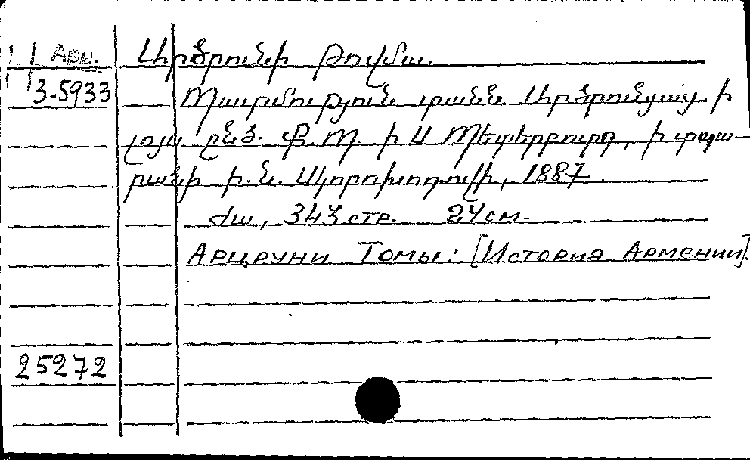 Арм.
3-5933
Արծրունի Թովմա.
Պատմություն տանն Արծրունյաց ի
լոյս ընծ. Ք. Պ. ի Ս Պետերբուրգ, ի տպա-
րանի Ի. Ն. Սկորոխոդովի, 1887.
ժա, 343 стр. 24 см.
Арцруни Томы: [История Армении].
25272